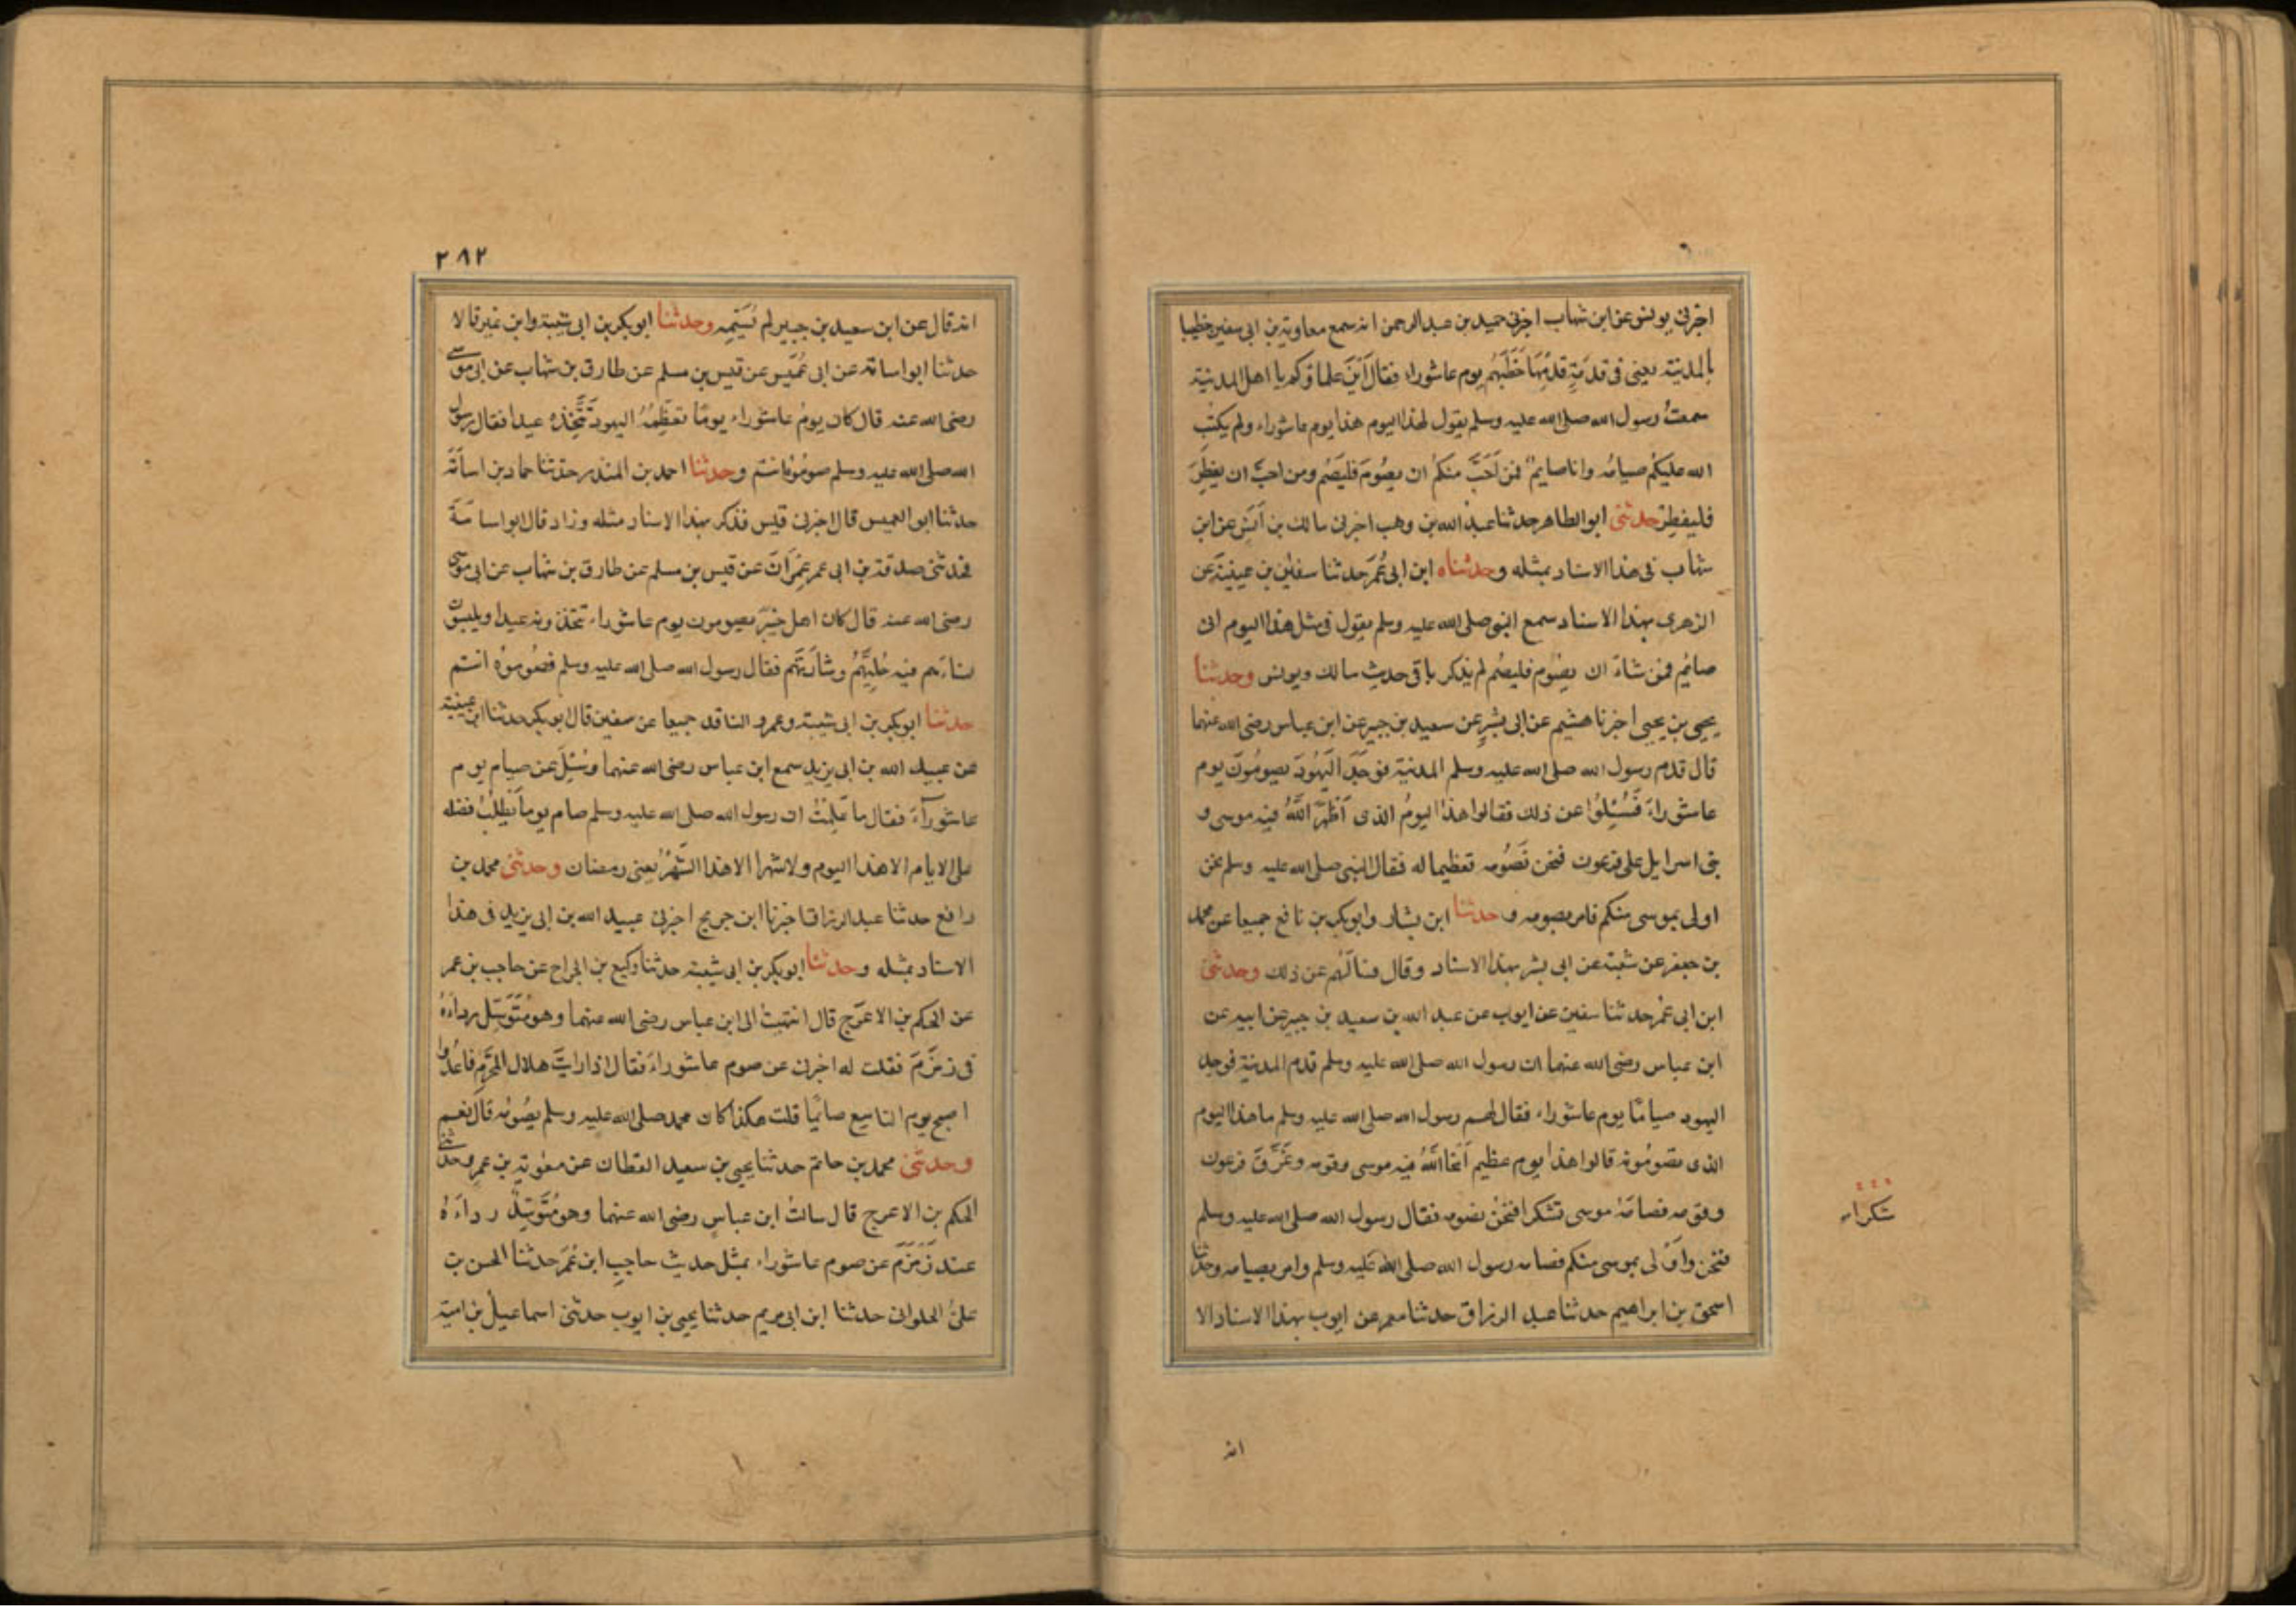 اخبرنى يونس عن ابن شهاب اخبرنى حميد بن عبد الرحمن انه سمع معاوية بن ابى سفين خطيبا
بالمدينة يعنى فى قدمَةٍ قدِمَهَا خَطَبَهُم يوم عاشوراء فقال اَيْنَ علماؤكم يا اهل المدينة
سمعتُ رسول الله صلى الله عليه وسلم يقول لهذا اليوم هذا يوم عاشوراء ولم يكتب
الله عليكُم صيامُه وانا صايمٌ فمن اَحَبَّ منكُم ان يصُومَ فليَصُم ومن احبَّ ان يفطِرَ
فليفطِر حدثنى ابو الطاهر حدثنا عبد الله بن وهب اخبرنى مالك بن اَنَسٍ عن ابن
شهاب فى هذا الاسناد بمثله وحدثناه ابن ابى عُمَرَ حدثنا سفين بن عيينة عن
الزهرى بهذا الاسناد سمع النبى صلى الله عليه وسلم يقول فى مثل هذا اليوم انى
صائمٌ فمن شاءَ ان يصُوم فليصُم لم يذكر باقى حديث مالك ويونس وحدثنا
يحيى بن يحيى اخبرنا هشيم عن ابى بشرٍ عن سعيد بن جبير عن ابن عباس رضى الله عنهما
قال قدم رسول الله صلى الله عليه وسلم المدينة فوَجَدَ اليَهُودَ يصومُونَ يوم
عاشوراءَ فَسُئِلُوا عن ذلك فقالوا هذا اليومُ الذى اَظهَرَ اللَّهُ فيه موسى و
بنى اسرايل على فرعون فنحن نَصُومه تعظيما له فقال النبى صلى الله عليه وسلم نحن
اولى بموسى منكم فامر بصومه و حدثنا ابن بشار وابو بكر بن نافع جميعا عن محمد
بن جعفر عن شعبة عن ابى بشر بهذا الاسناد وقال فسالَهُم عن ذلك وحدثنى
ابن ابى عُمَر حدثنا سفين عن ايوب عن عبد الله بن سعيد بن جبير عن ابيه عن
ابن عباس رضى الله عنهما ان رسول الله صلى الله عليه وسلم قدم المدينة فوجد
اليهود صيامًا يوم عاشوراء فقال لهم رسول الله صلى الله عليه وسلم ما هذا اليوم
الذى تصومُونه قالوا هذا يوم عظيم اَنجَا اللَّهُ فيه موسى وقومه وغَرَّقَ فرعون
وقومه فصامَهُ موسى تشكرا فنحنُ نصومه فقال رسول الله صلى الله عليه وسلم
شكرا
فنحن واَوْلى بموسى منكم فصامه رسول الله صلى الله عليه وسلم وامر بصيامه وحدثنا
اسحق بن ابراهيم حدثنا عبد الرزاق حدثنا معمر عن ايوب بهذا الاسناد الا
انه
٢٨٢
انه قال عن ابن سعيد بن جبير لم يُسَمِّه وحدثنا ابو بكر بن ابى شيبة وابن نمير قالا
حدثنا ابو اسامة عن ابى عُمَيْس عن قيس بن مسلم عن طارق بن شهاب عن ابى موسى
رضى الله عنه قال كان يومُ عاشوراء يومًا تعَظِّمُهُ اليهود تَتَّخِذه عيدا فقال رسول
الله صلى الله عليه وسلم صومُوهُ انتم وحدثنا احمد بن المنذر حدثنا حماد بن اسامَةَ
حدثنا ابو العميس قال اخبرنى قيس فذكر بهذا الاسناد مثله وزاد قال ابو اسامَةَ
فحدثنى صدقة بن ابى عمر عِمرَانَ عن قيس بن مسلم عن طارق بن شهاب عن ابى موسى
رضى الله عنه قال كان اهل خيبر يصومون يوم عاشوراء تتخذونه عيدا ويلبسون
نساءهم فيه حُلِيَّهُم وشارَتَهم فقال رسول الله صلى الله عليه وسلم فصُوموُه انتم
حدثنا ابو بكر بن ابى شيبة وعمرو الناقد جميعا عن سفين قال ابو بكر حدثنا ابن عيينة
عن عبيد الله بن ابى يزيد سمع ابن عباس رضى الله عنهما وسُئِلَ عن صيام يوم
عاشورآءَ فقال ما عَلِمتُ ان رسول الله صلى الله عليه وسلم صام يوما يَطلُبُ فضله
على الايام الا هذا اليوم ولا شهرا الا هذا الشَّهرُ يعنى رمضان وحدثنى محمد بن
رافع حدثنا عبد الرزاق اخبرنا ابن جريج اخبرنى عبيد الله بن ابى يزيد فى هذا
الاسناد بمثله وحدثنا ابو بكر بن ابى شيبة حدثنا وكيع بن الجراح عن حاجب بن عمر
عن الحكم بن الاعرَج قال انتهيتُ الى ابن عباس رضى الله عنهما وهو مُتَوَسِّل رداءَهُ
فى زمزَمَ فقلت له اخبرنى عن صوم عاشوراءَ فقال اذا رايتَ هلال المحرَّم فاعْدُدْ وا
اصبح يوم التاسع صائمًا قلت هكذا كان محمد صلى الله عليه وسلم يصُومُه قال نعم
وحدثنى محمد بن حاتم حدثنا يحيى بن سعيد القطان عن معوية بن عمرٍو حدثنى
الحكم بن الاعرج قال سالتُ ابن عباسٍ رضى الله عنهما وهو مُتَوَسِّدٌ رداءَهُ
عند زَمزَمَ عن صوم عاشوراء بمثل حديث حاجِبِ ابن عُمَر حدثنا الحسن بن
علىٍّ الحلوانى حدثنا ابن ابى مريم حدثنا يحيى بن ايوب حدثنى اسماعيلُ بن امية